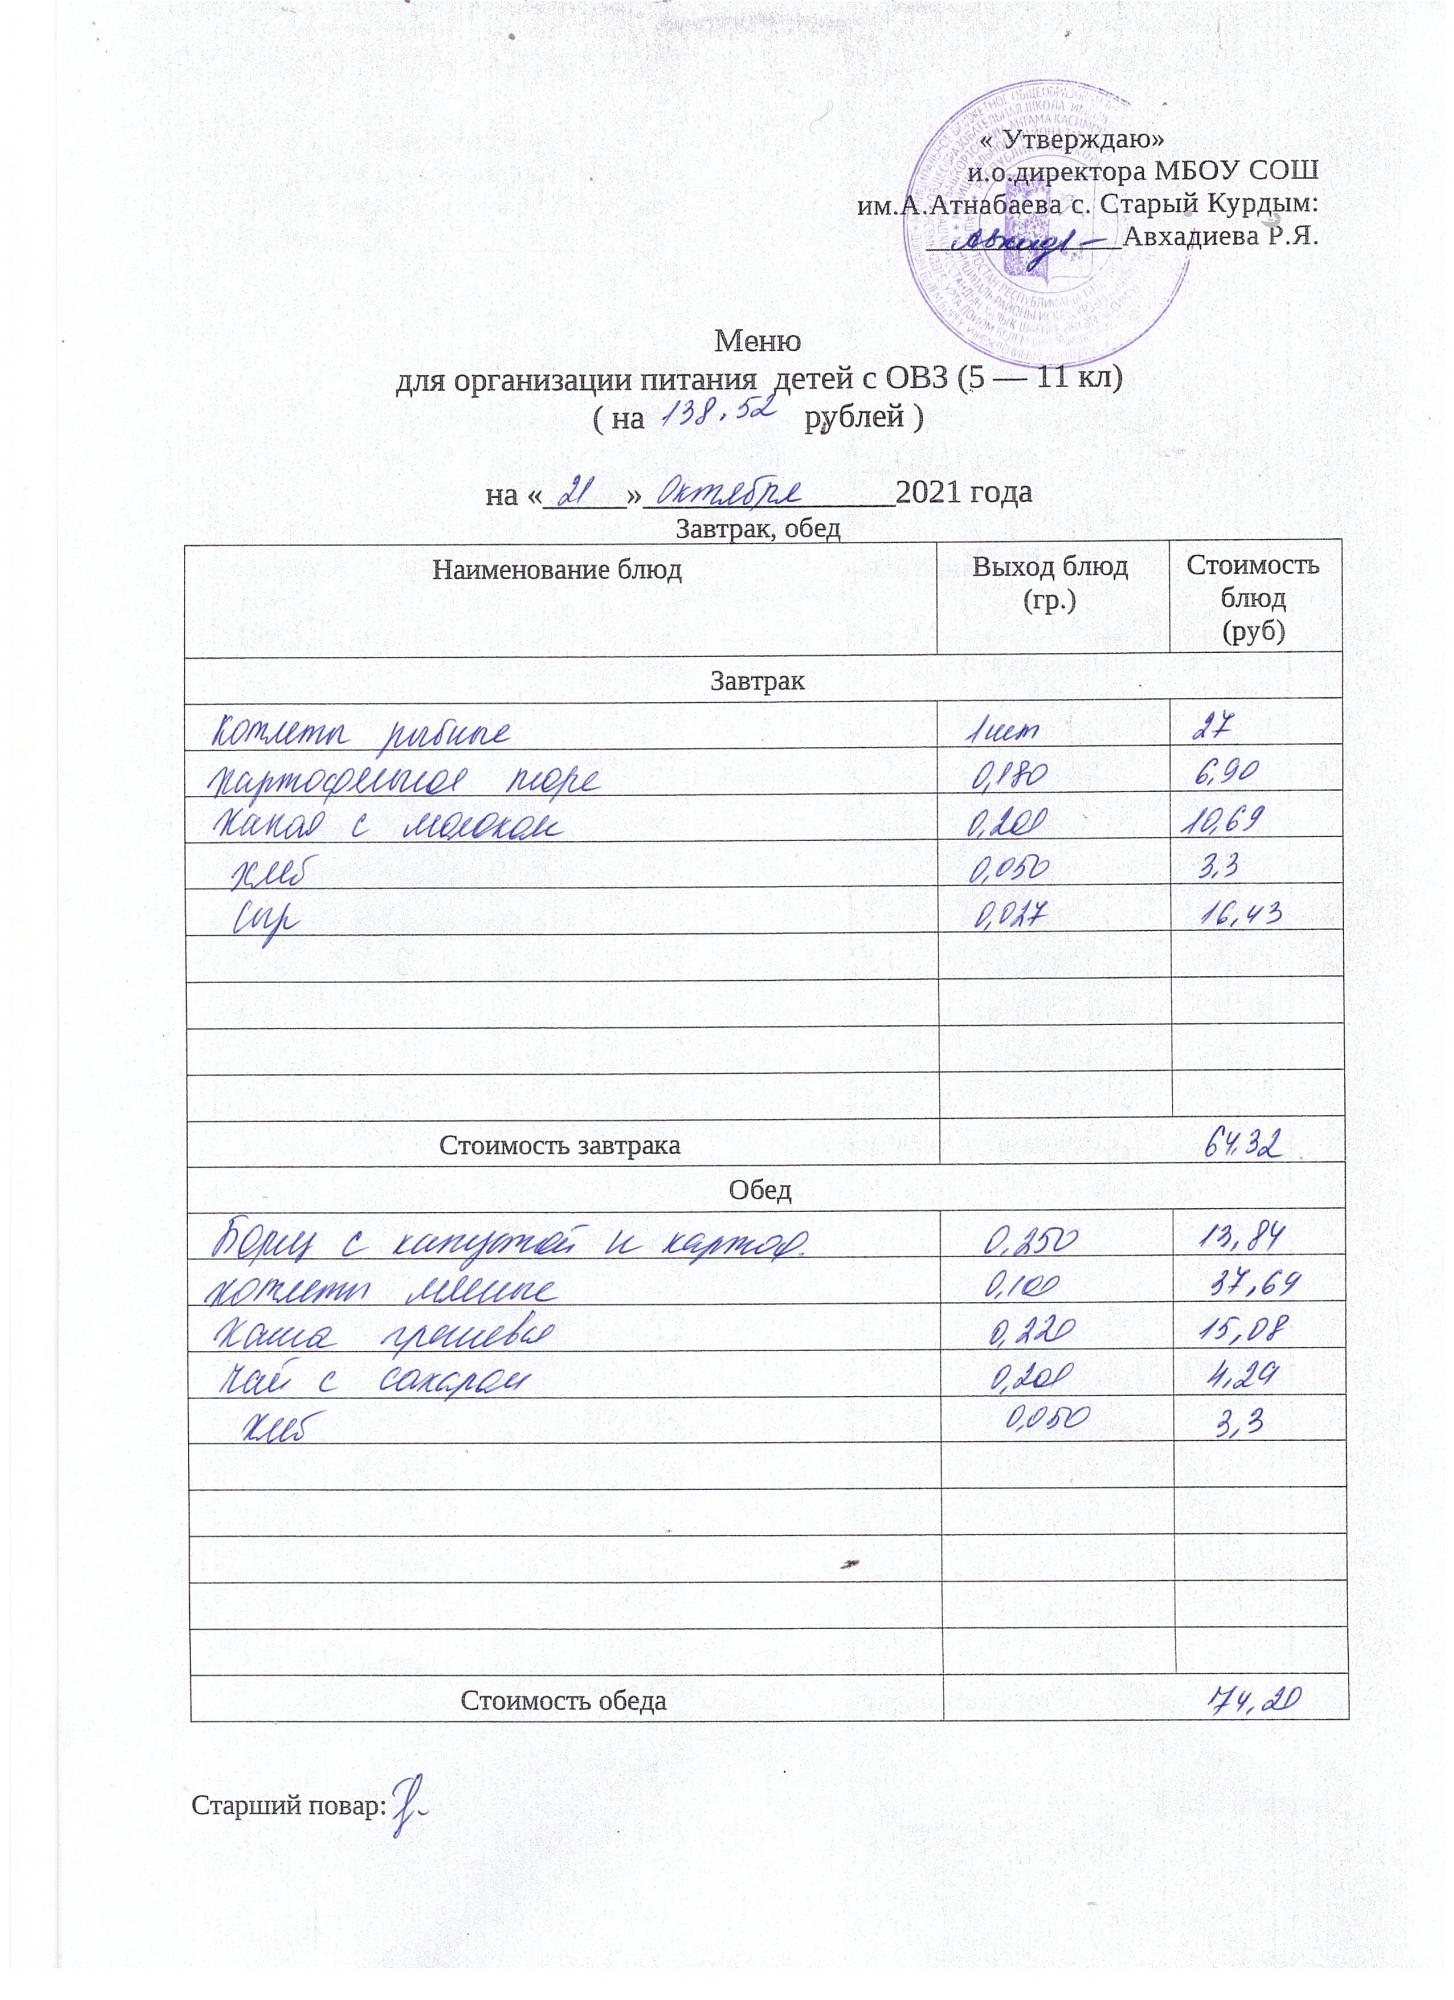 « Утверждаю»
и.о.директора МБОУ СОШ
им.А.Атнабаева с. Старый Курдым:
Авхадиева Р.Я.
Меню
для организации питания детей с ОВЗ (5 — 11 кл)
( на 138.52 рублей )
на « 21 » Октября 2021 года
Завтрак, обед
Наименование блюд Выход блюд (гр.) Стоимость блюд (руб)
Завтрак
Котлеты рыбные 1шт 27
Картофельное пюре 0,180 6,90
Какао с молоком 0,200 10,69
Хлеб 0,050 3,3
Сыр 0,027 16,43
Стоимость завтрака 64.32
Обед
Борщ с капустой и картоф. 0,250 13,84
Котлеты мясные 0,100 37,69
Каша гречневая 0,220 15,08
Чай с сахаром 0,200 4,29
Хлеб 0,050 3,3
Стоимость обеда 74,20
Старший повар: